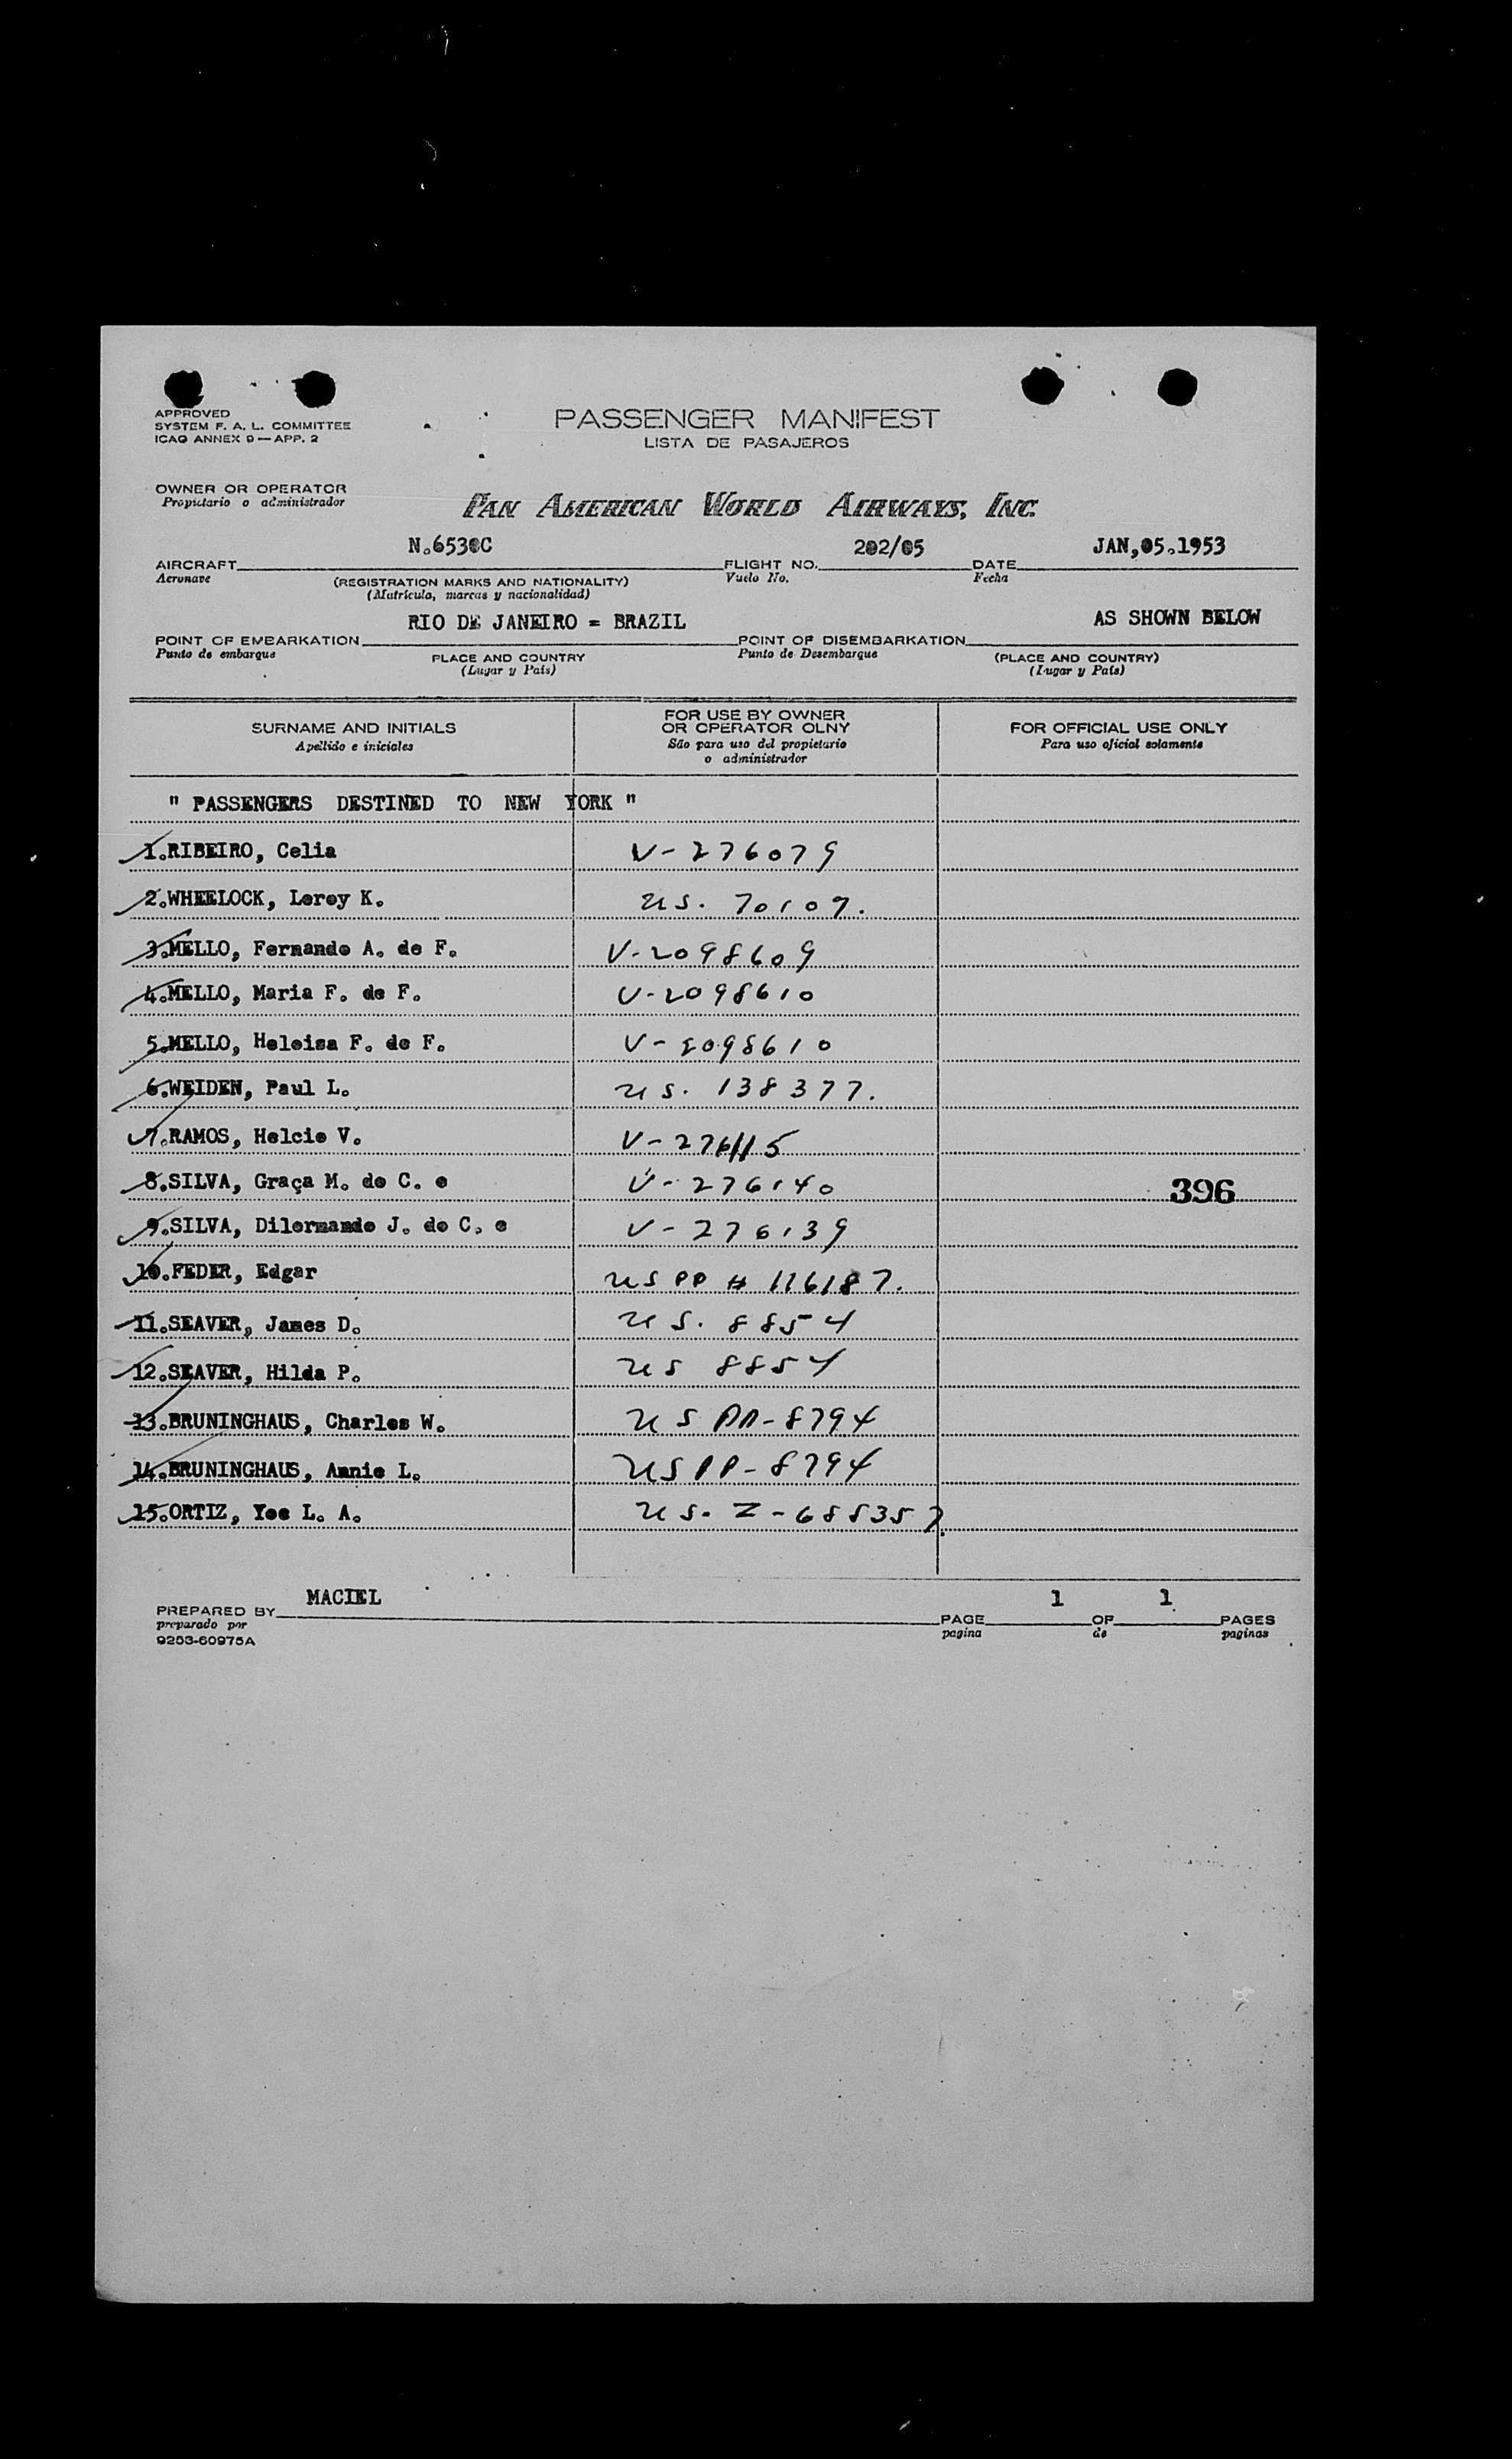 APPROVED
SYSTEM F. A. L. COMMITTEE
ICAO ANNEX 9 — APP. 2
PASSENGER MANIFEST
LISTA DE PASAJEROS
OWNER OR OPERATOR
Propietario o administrador
PAN AMERICAN WORLD AIRWAYS, INC.
AIRCRAFT N.6530C FLIGHT NO. 202/05 DATE JAN,05.1953
Aeronave (REGISTRATION MARKS AND NATIONALITY) Vuelo No. Fecha
(Matrícula, marcas y nacionalidad)
POINT OF EMBARKATION RIO DE JANEIRO = BRAZIL POINT OF DISEMBARKATION AS SHOWN BELOW
Punto de embarque PLACE AND COUNTRY Punto de Desembarque (PLACE AND COUNTRY)
(Lugar y País) (Lugar y País)
SURNAME AND INITIALS
Apellido e iniciales
FOR USE BY OWNER
OR OPERATOR OLNY
São para uso del propietario
o administrador
FOR OFFICIAL USE ONLY
Para uso oficial solamente
" PASSENGERS DESTINED TO NEW YORK "
1.RIBEIRO, Celia V-276079
2.WHEELOCK, Leroy K. US. 70107.
3.MELLO, Fernando A. de F. V-2098609
4.MELLO, Maria F. de F. V-2098610
5.MELLO, Heloisa F. de F. V-2098610
6.WEIDEN, Paul L. US. 138377.
7.RAMOS, Helcio V. V-276115
8.SILVA, Graça M. do C. e V-276140 396
9.SILVA, Dilermando J. do C. e V-276139
10.FEDER, Edgar US PP # 116187.
11.SEAVER, James D. US. 8854
12.SEAVER, Hilda P. US 8854
13.BRUNINGHAUS, Charles W. US PP-8794
14.BRUNINGHAUS, Annie L. US PP-8794
15.ORTIZ, Yoe L. A. US. Z-688357
PREPARED BY MACIEL PAGE 1 OF 1 PAGES
preparado por pagina de paginas
9253-60975A